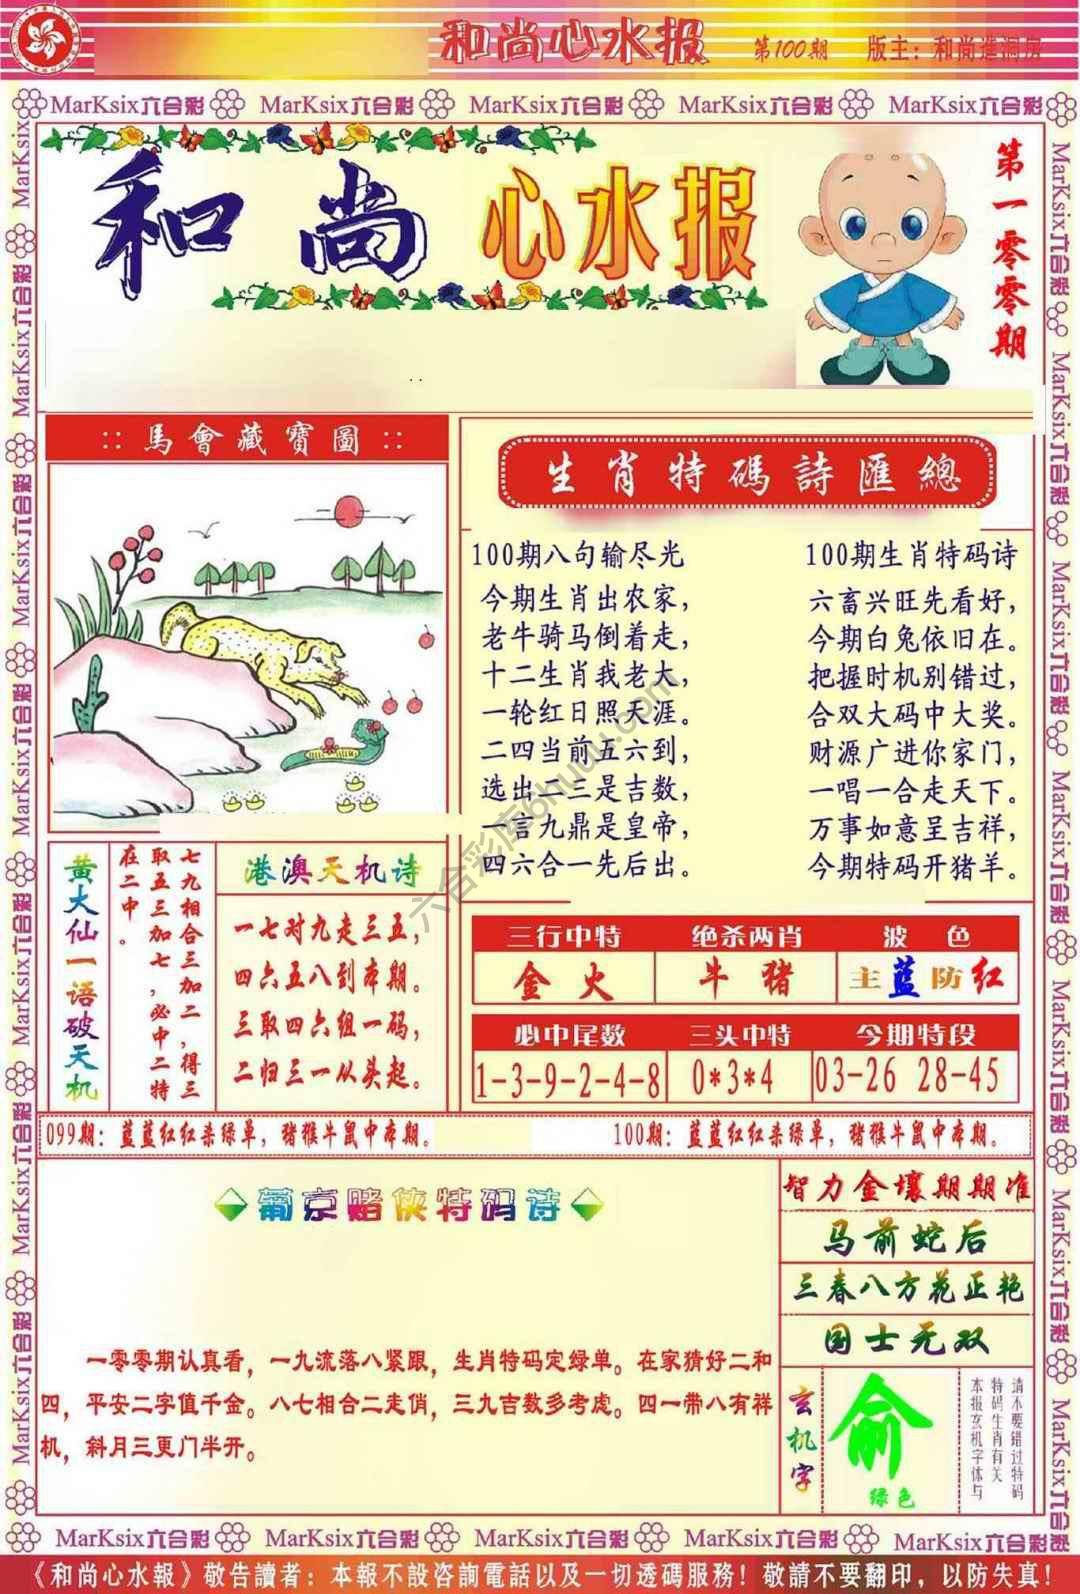 和尚心水报 第100期 版主：和尚進洞房
MarKsix六合彩 MarKsix六合彩 MarKsix六合彩 MarKsix六合彩 MarKsix六合彩
和尚心水报
第一零零期
::馬會藏寶圖::
生肖特碼詩匯總
100期八句输尽光
今期生肖出农家，
老牛骑马倒着走，
十二生肖我老大，
一轮红日照天涯。
二四当前五六到，
选出一三是吉数，
一言九鼎是皇帝，
四六合一先后出。
100期生肖特码诗
六畜兴旺先看好，
今期白兔依旧在。
把握时机别错过，
合双大码中大奖。
财源广进你家门，
一唱一合走天下。
万事如意呈吉祥，
今期特码开猪羊。
六合彩库6huu.com
黄大仙一语破天机
七九相合三加二，得三
取五三加七，必中二特
在二中。
港澳天机诗
一七对九走三五，
四六五八到本期。
三取四六组一码，
二归三一从头起。
三行中特 绝杀两肖 波色
金火 牛猪 主蓝防红
必中尾数 三头中特 今期特段
1-3-9-2-4-8 0*3*4 03-26 28-45
099期：蓝蓝红红杀绿单，猪猴牛鼠中本期。
100期：蓝蓝红红杀绿单，猪猴牛鼠中本期。
葡京赌侠特码诗
一零零期认真看，一九流落八紧跟，生肖特码定绿单。在家猜好二和
四，平安二字值千金。八七相合二走俏，三九吉数多考虑。四一带八有祥
机，斜月三更门半开。
智力金壤期期准
马前蛇后
三春八方花正艳
国士无双
玄机字
俞
绿色
请不要错过特码
特码生肖有关
本报玄机字体与
MarKsix六合彩 MarKsix六合彩 MarKsix六合彩 MarKsix六合彩 MarKsix六合彩
《和尚心水報》敬告讀者：本報不設咨詢電話以及一切透碼服務！敬請不要翻印，以防失真！